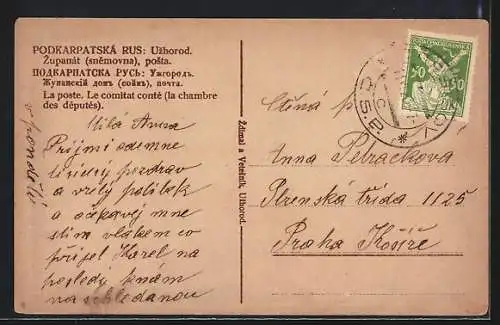 PODKARPATSKÁ RUS: Užhorod.
Županát (sněmovna), pošta.
ПОДКАРПАТСКА РУСЬ: Ужгородъ.
Жупанскій домъ (соймъ), почта.
La poste. Le comitat conté (la chambre
des députés).
v pondělí
Milá Anna
Přijmi odemne
srdečný pozdrav
a vřelý polibek
a očkávej mne
stím vlakem co
přijel Karel na
posledy k nám
na schledanou
Ždímal a Vetešník, Užhorod.
50 50
Ctěná pí
Anna Petráčkova
Plzenská třída 1125
Praha Košíře